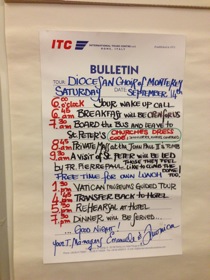 ITC
INTERNATIONAL TRAVEL
BULLETIN
TOUR: DIOCESAN CHOIR OF MONTEREY
SATURDAY DATE: SEPTEMBER 11th
6:00 o'clock YOUR WAKE UP CALL
6:30 AM BREAKFAST WILL BE OPEN FOR US
7:30 AM BOARD THE BUS AND
ST PETER'S CHURCHES DRESS
CODE!
8:45 AM PRIVATE MASS AT THE JOHN PAUL II TOMB
9:45 AM A VISIT OF ST PETER WILL BE LED
BY FR. PIERRE PAUL
DOME!
FREE TIME FOR OWN LUNCH
VATICAN MUSEUMS GUIDED TOUR
TRANSFER BACK TO HOTEL
REHEARSAL AT HOTEL
7:30 PM DINNER WILL BE SERVED...
... GOOD NIGHT!
Your T. Managers Emanuele &